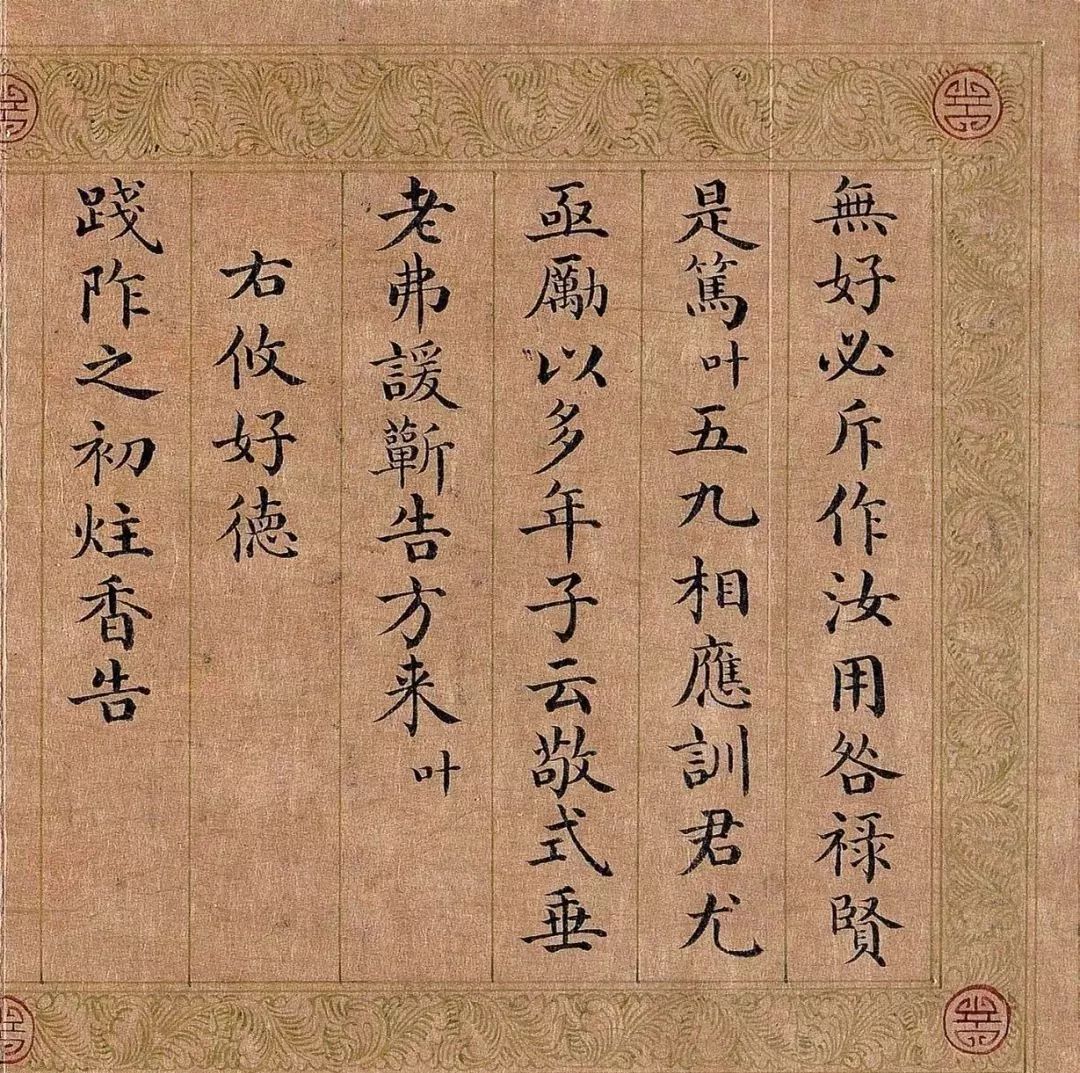 無好必斥作汝用咎禄賢
是篤叶五九相應訓君尤
亟勵以多年子云敬式垂
老弗諼蘄告方来叶
右攸好徳
踐阼之初炷香告